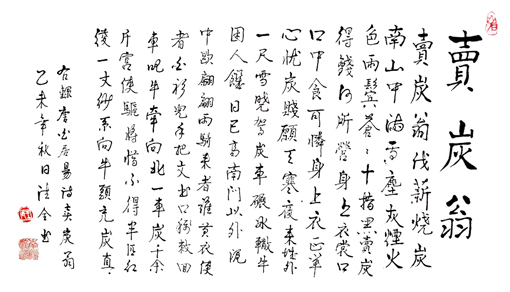 賣炭翁
賣炭翁伐薪燒炭
南山中滿面塵灰煙火
色兩鬢蒼〻十指黑賣炭
得錢何所營身上衣裳口
口中食可憐身上衣正單
心忧炭賤願天寒夜来城外
一尺雪曉駕炭車碾冰轍牛
困人饑日已高南門以外泥
中歇翩翩兩騎来者誰黄衣使
者白衫兒手把文書口稱敕回
車叱牛牽向北一車炭千余
斤宫使驅將惜不得半匹红
绫一丈紗系向牛頭充炭直
右録唐白居易詩賣炭翁
乙未年秋日